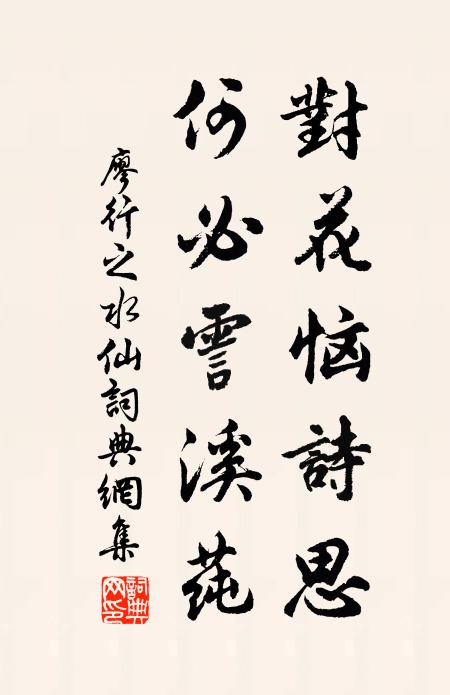 對花恼詩思
何必霅溪莼
廖行之水仙詞典網集
詞典
网印